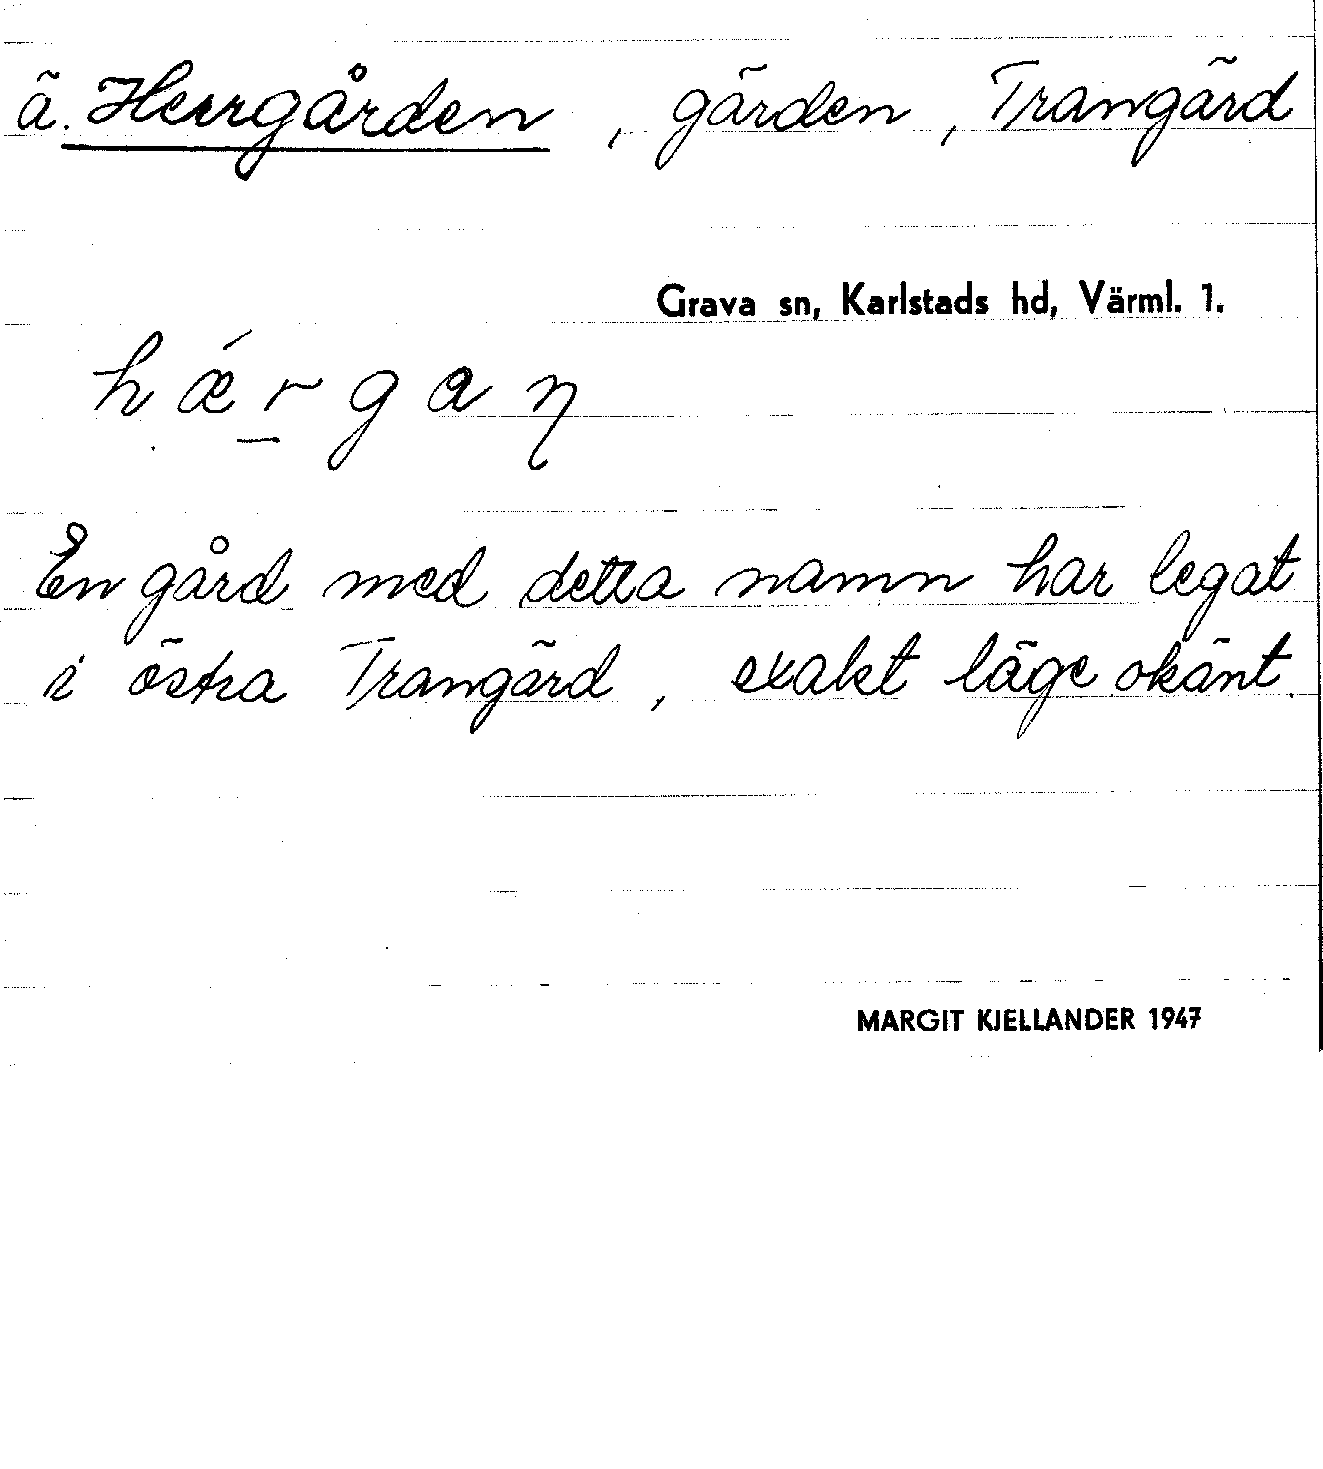 ä. Herrgården, gärden, Trangärd
Grava sn, Karlstads hd, Värml. l.
hǽr̲gaɳ
En gård med detta namn har legat
i östra Trangärd, exakt läge okänt.
MARGIT KJELLANDER 1947